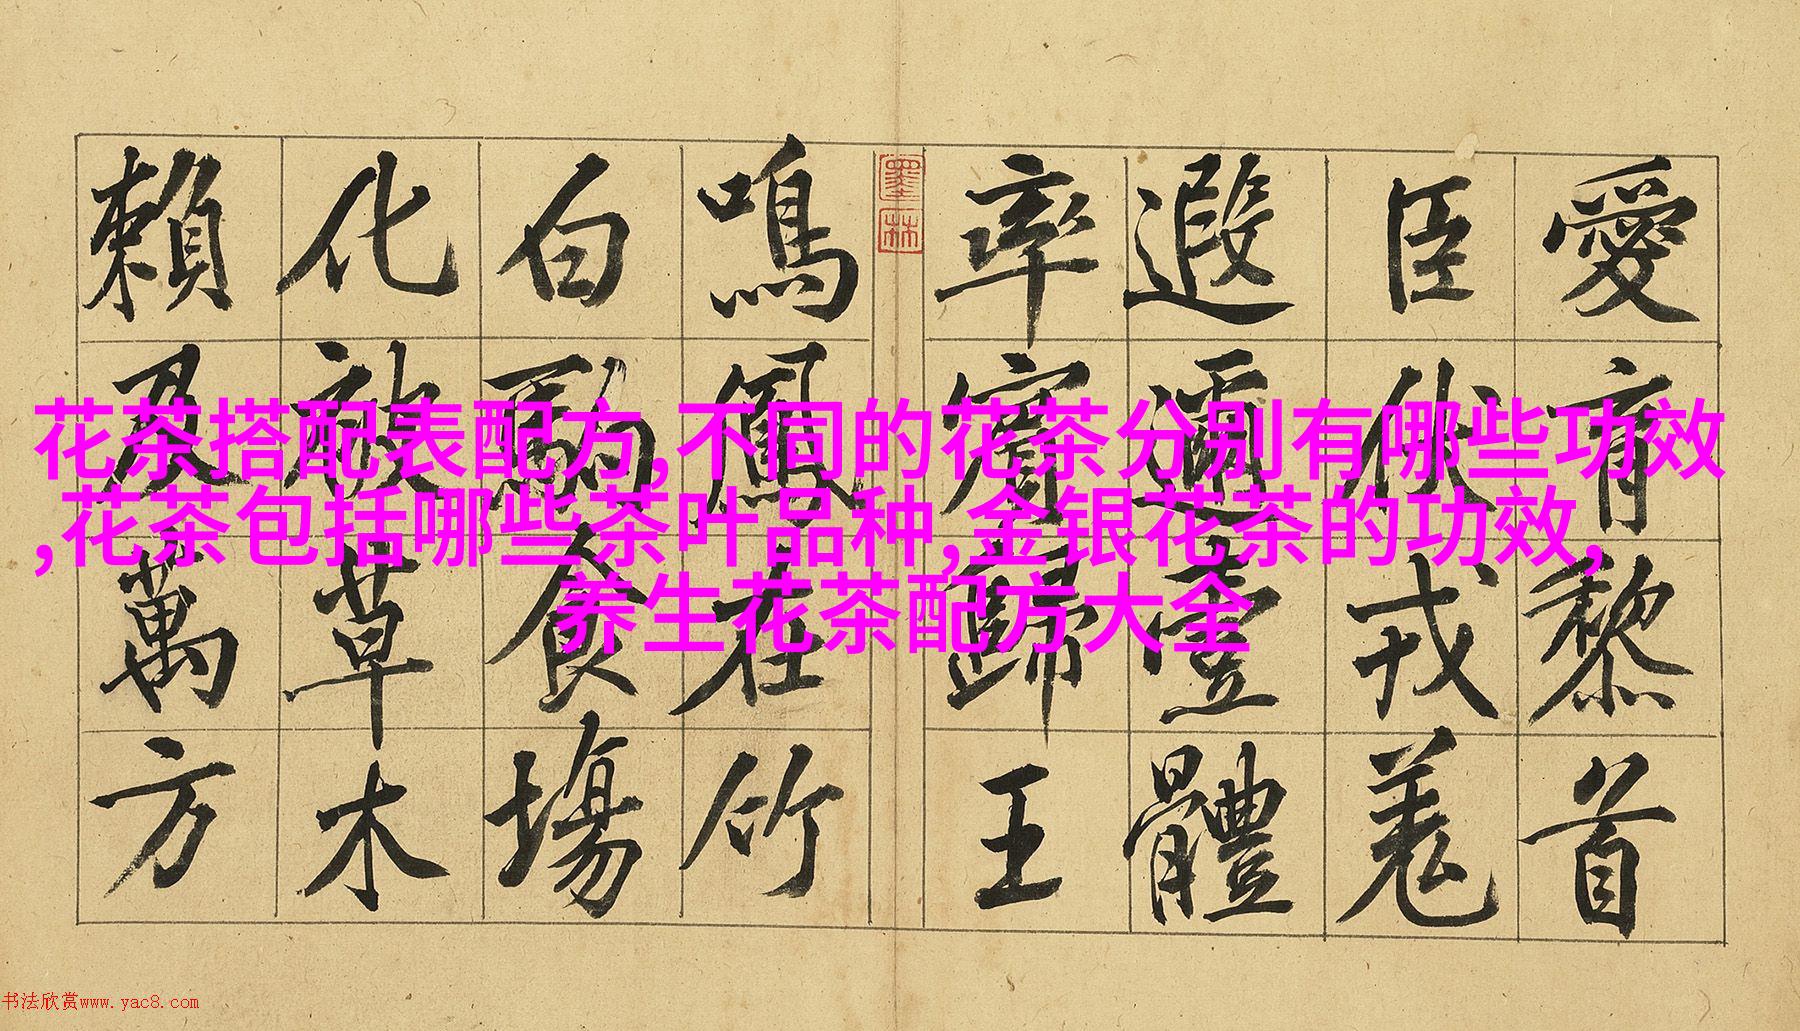 愛育黎首
臣伏戎羌
遐邇壹體
率賓歸王
墨林
鳴鳳在竹
白駒食場
化被草木
賴及萬方
花茶搭配表配方,不同的花茶分别有哪些功效
,花茶包括哪些茶叶品种,金银花茶的功效,
养生花茶配方大全
书法欣赏www.yac8.com